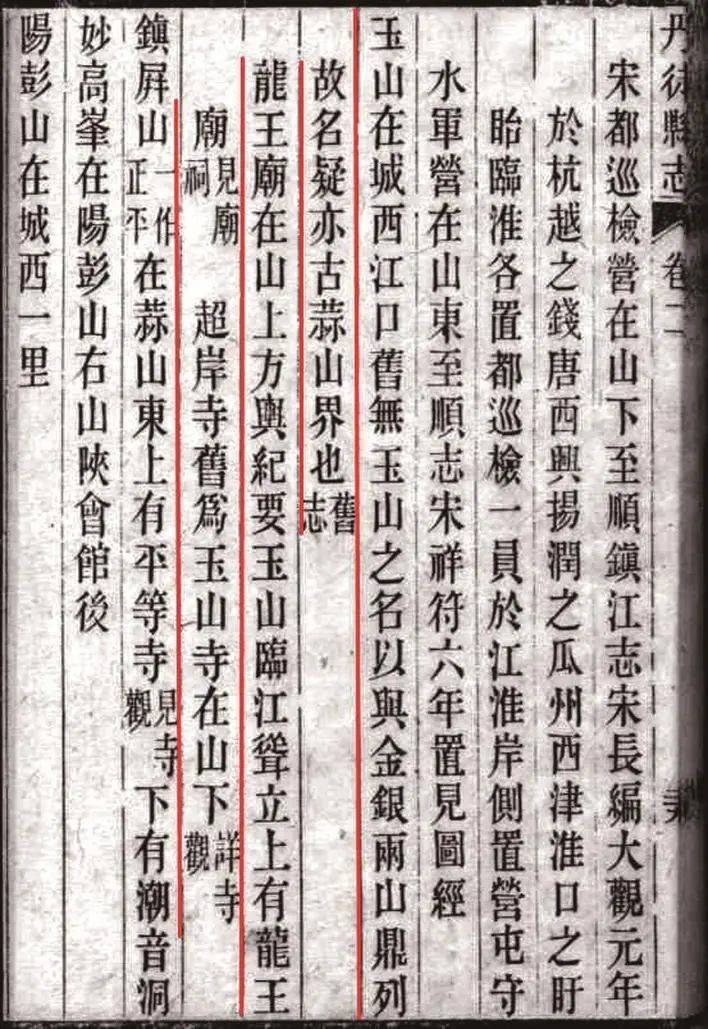 丹徒縣志 卷二
宋都巡檢營在山下至順鎮江志宋長編大觀元年
於杭越之錢唐西興揚潤之瓜州西津淮口之盱
眙臨淮各置都巡檢一員於江淮岸側置營屯守
水軍營在山東至順志宋祥符六年置見圖經
玉山在城西江口舊無玉山之名以與金銀兩山鼎列
故名疑亦古蒜山界也舊志
龍王廟在山上方輿紀要玉山臨江聳立上有龍王
廟見廟祠 超岸寺舊爲玉山寺在山下詳寺觀
鎮屛山一作正平在蒜山東上有平等寺見寺觀下有潮音洞
妙高峯在陽彭山右山陝會館後
陽彭山在城西一里